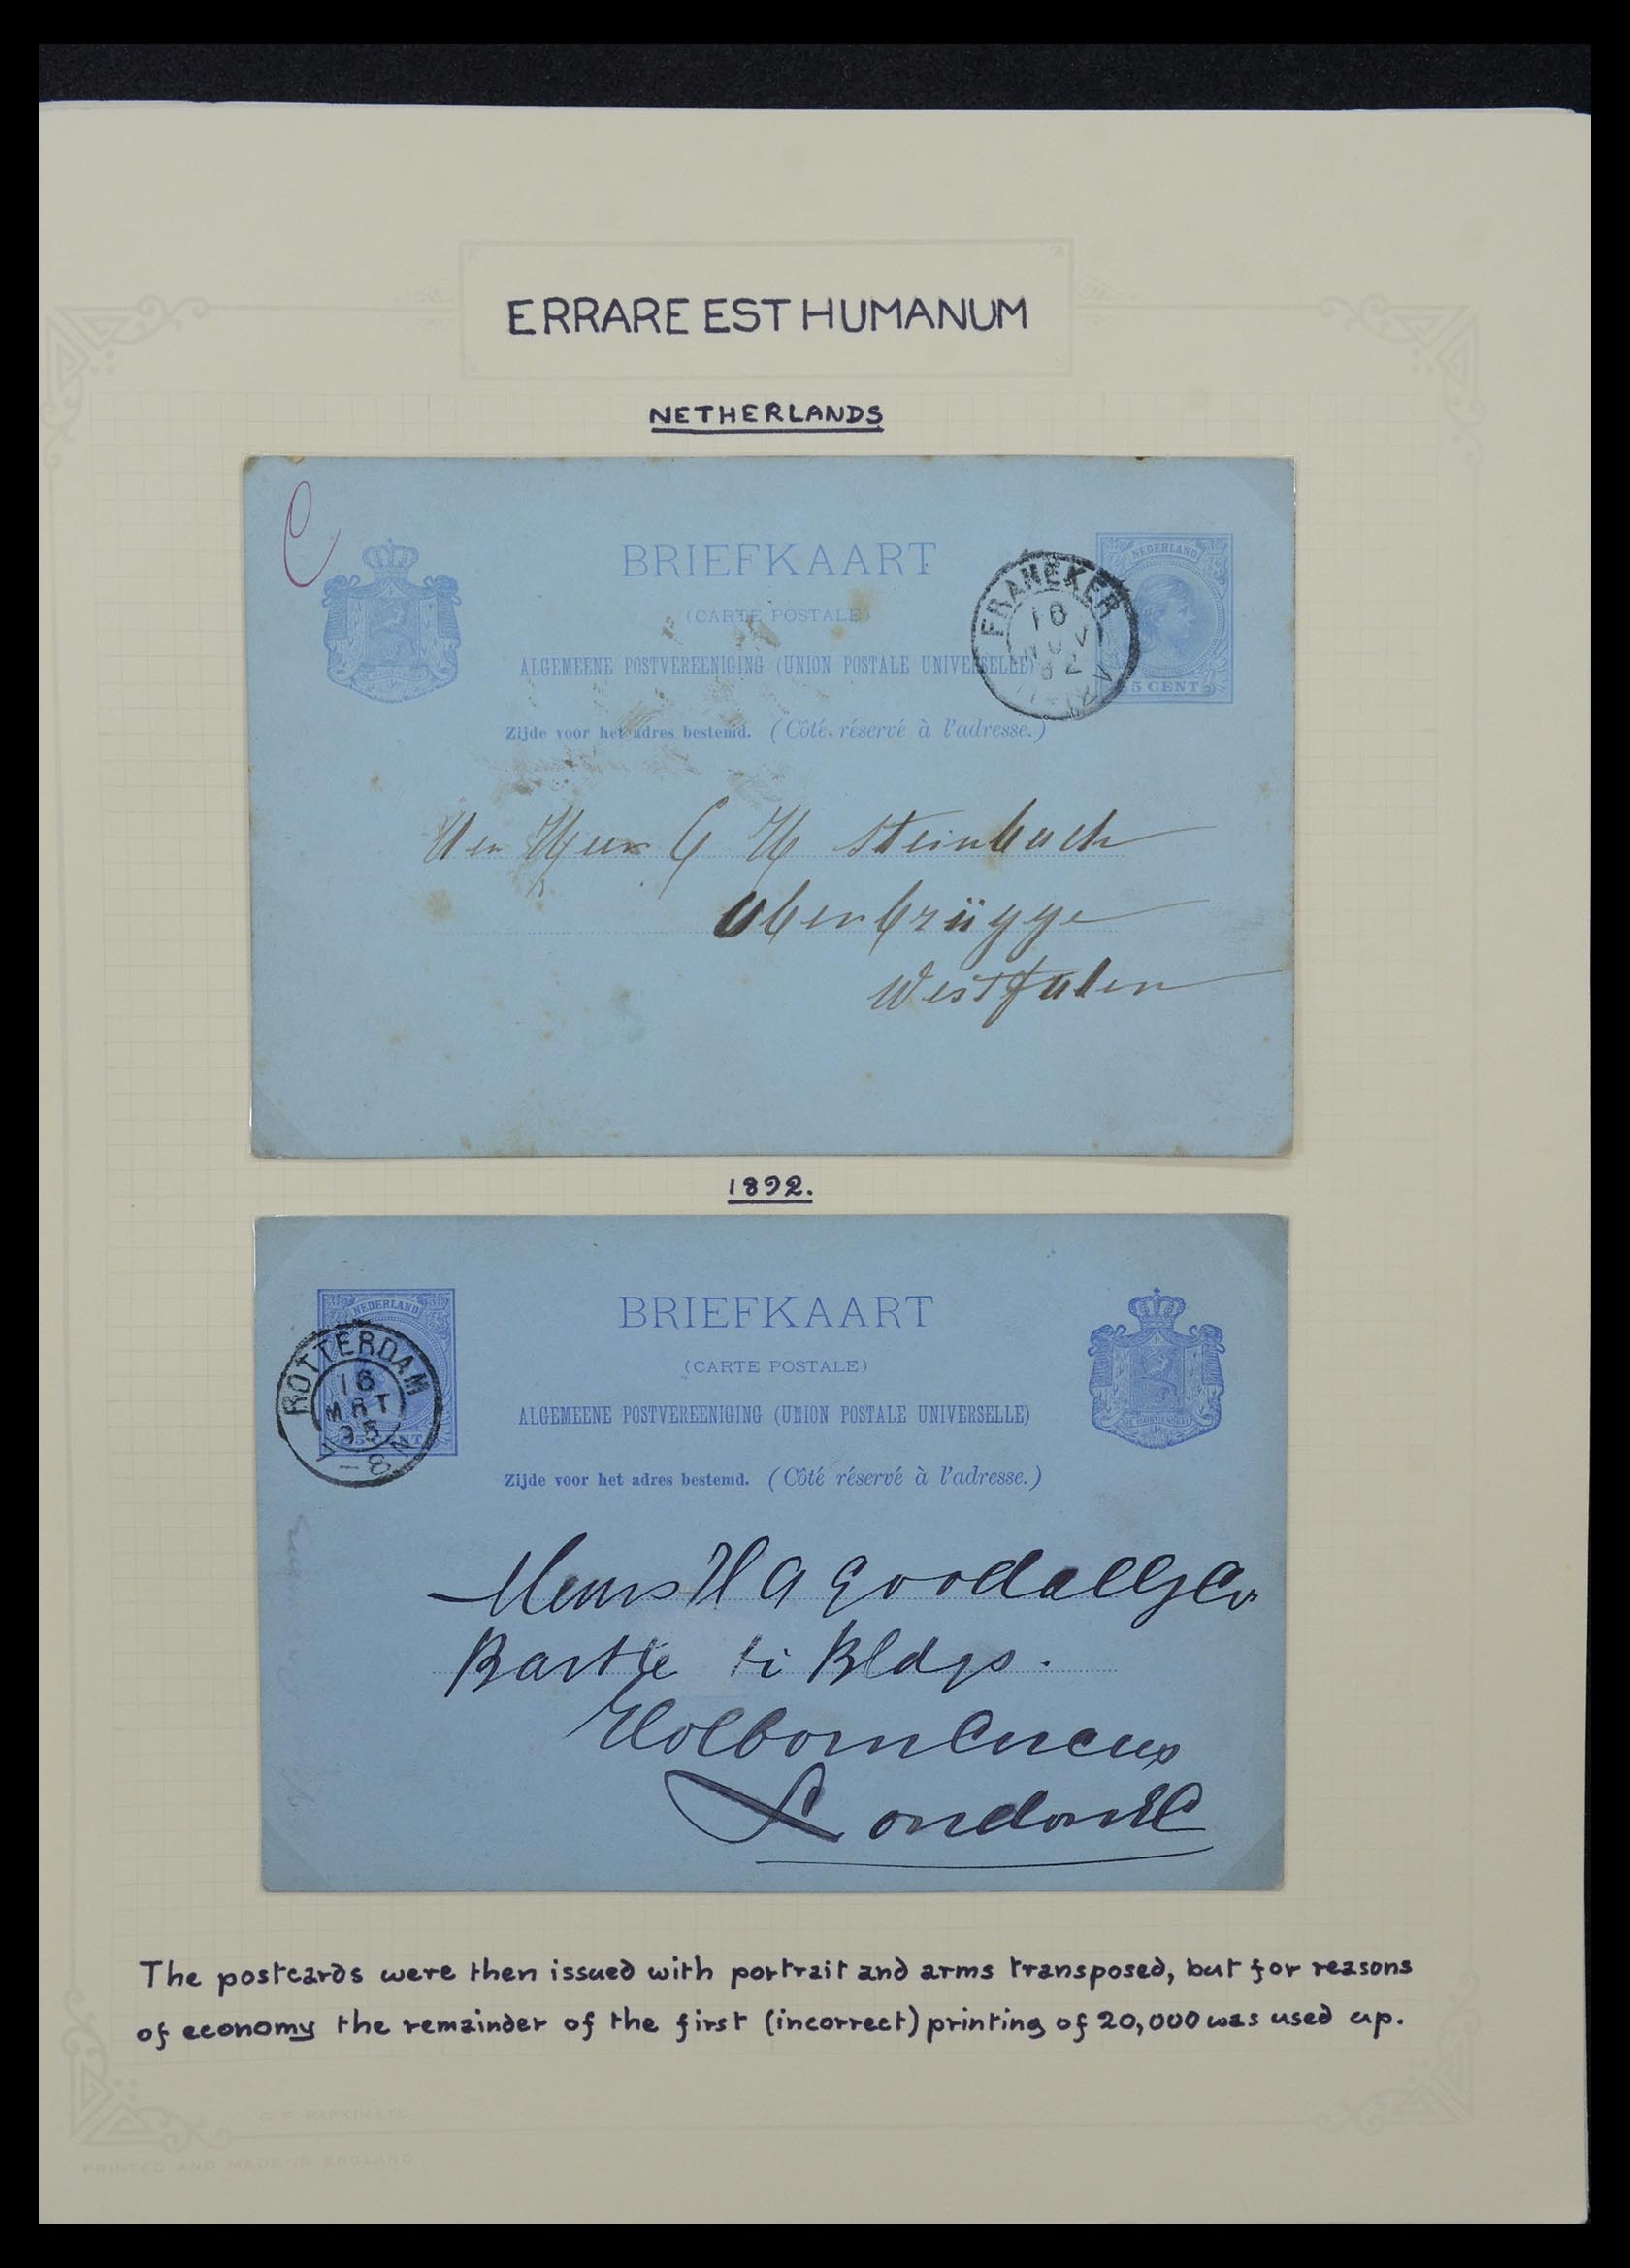 ERRARE EST HUMANUM
NETHERLANDS
C
BRIEFKAART
(CARTE POSTALE)
ALGEMEENE POSTVEREENIGING (UNION POSTALE UNIVERSELLE)
Zijde voor het adres bestemd. (Côté réservé à l'adresse.)
NEDERLAND
5 CENT
FRANEKER
18
NOV
92
Heer G H Steinbach
Obenbrügge
Westfalen
1892.
NEDERLAND
5 CENT
ROTTERDAM
16
MRT
95
7-8N
BRIEFKAART
(CARTE POSTALE)
ALGEMEENE POSTVEREENIGING (UNION POSTALE UNIVERSELLE)
Zijde voor het adres bestemd. (Côté réservé à l'adresse.)
Messrs H A Goodall & Co
Bldgs.
Holborn Circus
London EC
The postcards were then issued with portrait and arms transposed, but for reasons
of economy the remainder of the first (incorrect) printing of 20,000 was used up.
PRINTED AND MADE IN ENGLAND